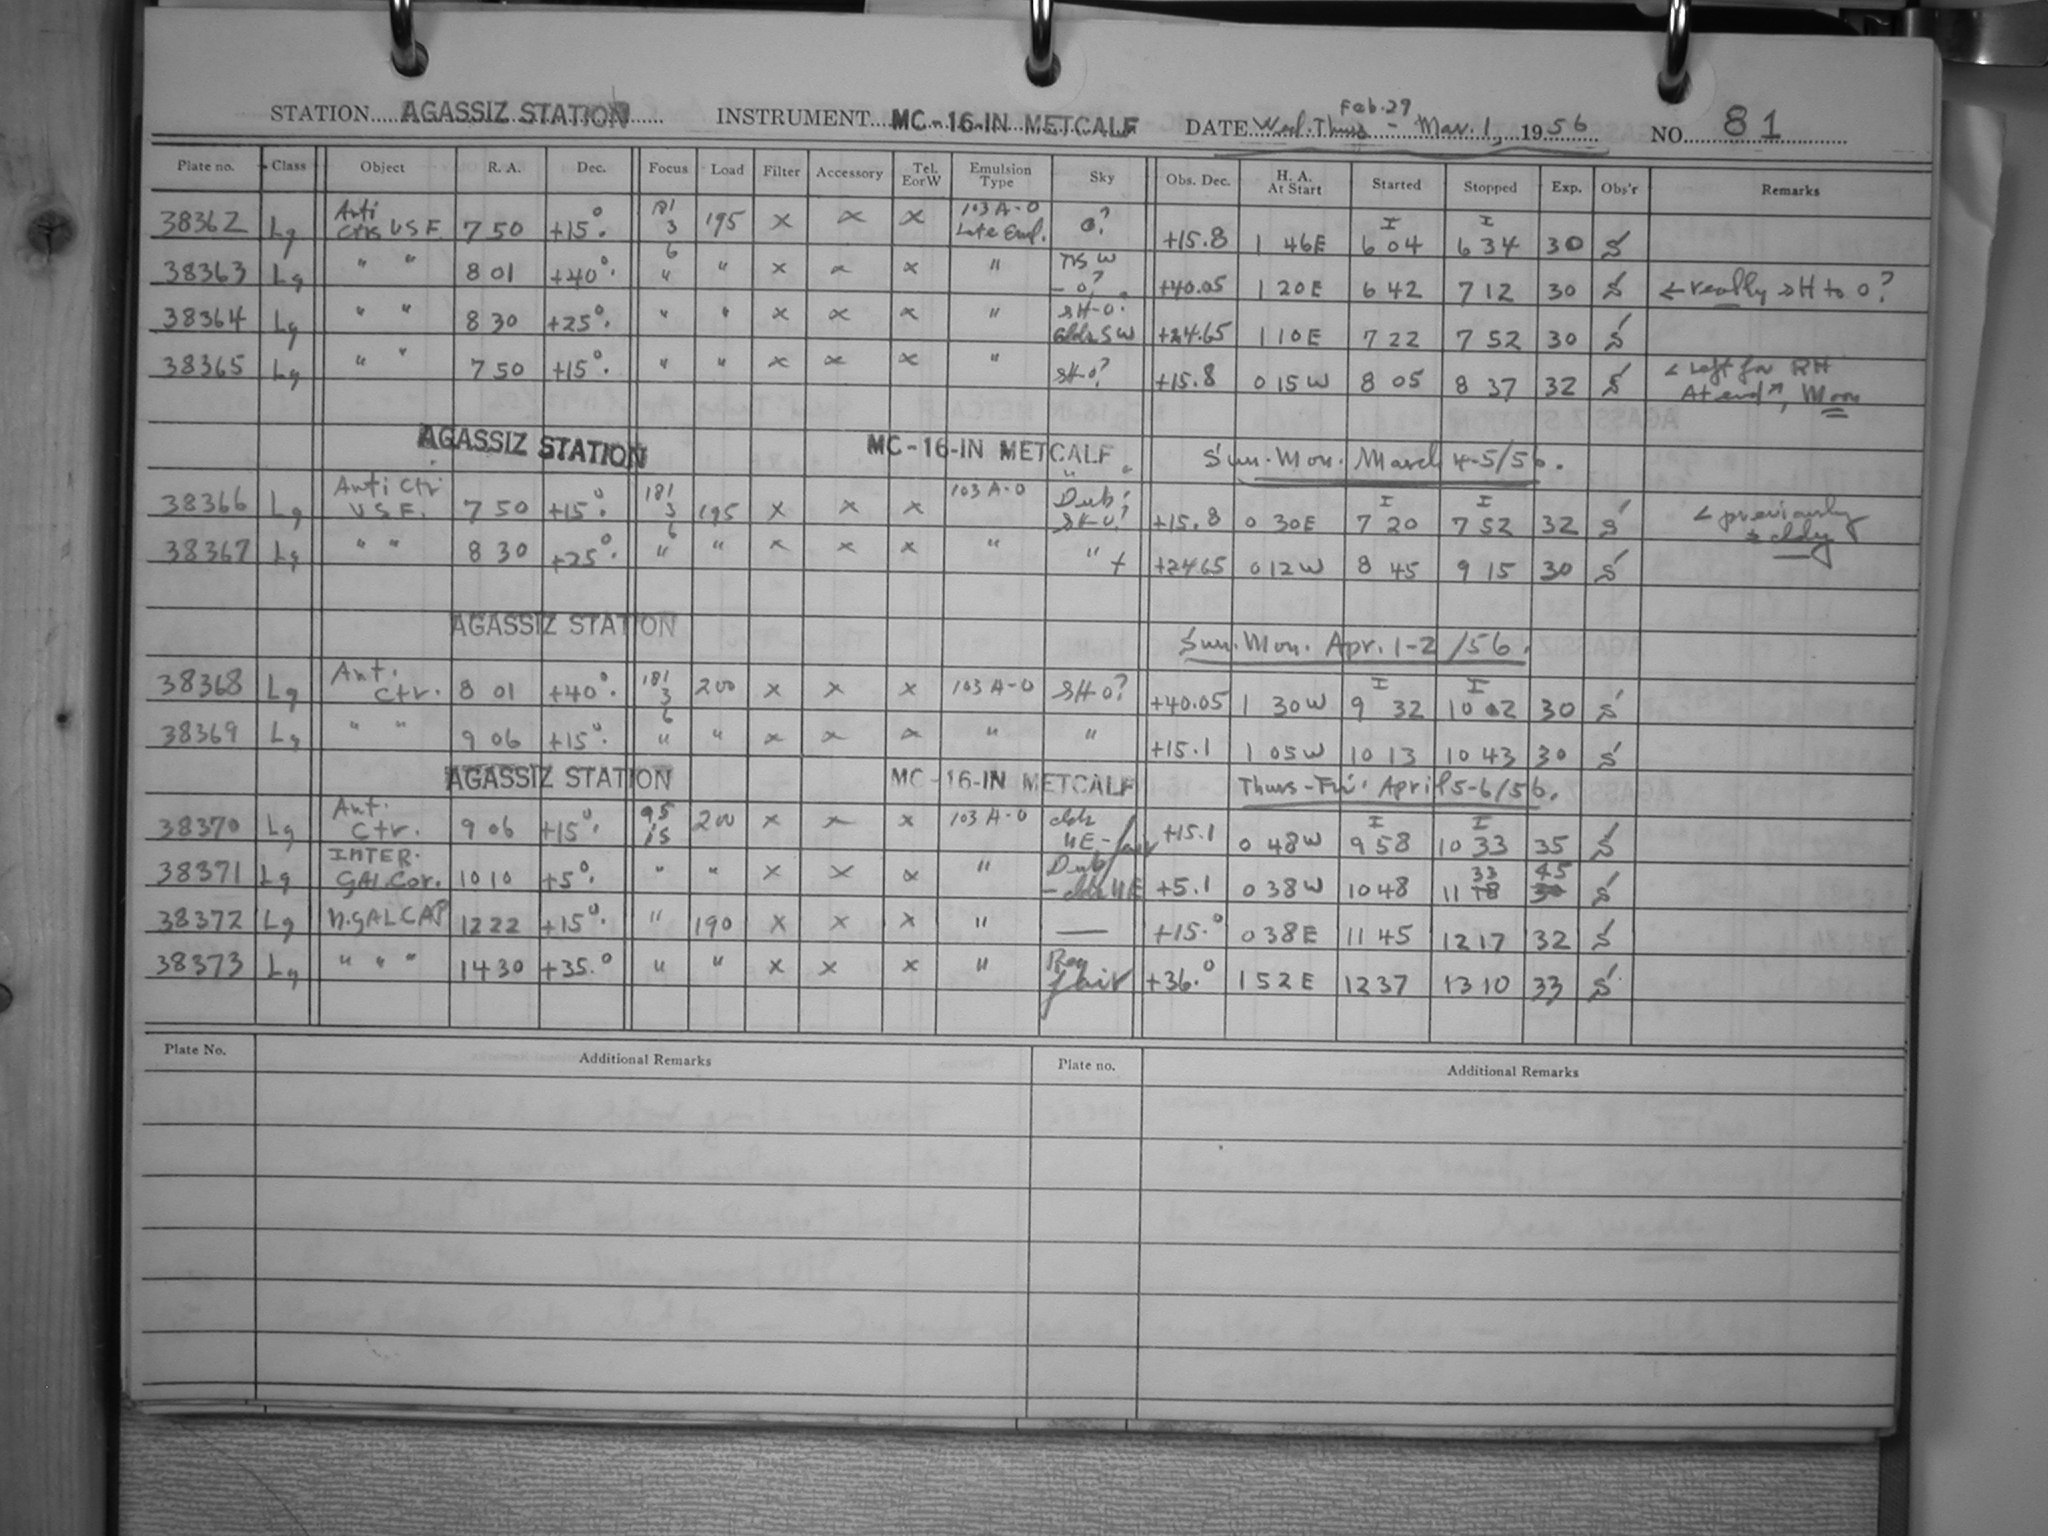 Feb. 29
STATION AGASSIZ STATION INSTRUMENT MC-16-IN METCALF DATE Wed. Thurs - Mar. 1, 1956 NO. 81
Plate no. Class Object R. A. Dec. Focus Load Filter Accessory Tel. EorW Emulsion Type Sky Obs. Dec. H. A. At Start Started Stopped Exp. Obs'r Remarks
38362 Lg Anti Ctrs VSF 7 50 +15°. 181 3 6 195 x x x 103 A-O Late Emul. 0? +15.8 1 46E I 6 04 I 6 34 30 S
38363 Lg " " 8 01 +40°. " " x x x " - 0? +40.05 1 20E 6 42 7 12 30 S < really sH to 0?
38364 Lg " " 8 30 +25°. " " x x x " sH-0. SW +24.65 1 10E 7 22 7 52 30 S
38365 Lg " " 7 50 +15°. " " x x x " sH-0? +15.8 0 15W 8 05 8 37 32 S < left for RH
At end, Moon
AGASSIZ STATION MC-16-IN METCALF Sun. Mon. March 4-5/56.
38366 Lg Anti Ctr VSF. 7 50 +15°. 181 3 6 195 x x x 103 A-O Dub. sH-0? +15.8 0 30E I 7 20 I 7 52 32 S < previously cldy
38367 Lg " " 8 30 +25°. " " x x x " " + +24.65 0 12W 8 45 9 15 30 S
AGASSIZ STATION Sun. Mon. Apr. 1-2/56.
38368 Lg Ant. Ctr. 8 01 +40°. 181 3 6 200 x x x 103 A-O sH 0? +40.05 1 30W I 9 32 I 10 02 30 S
38369 Lg " " 9 06 +15°. " " x x x " " +15.1 1 05W 10 13 10 43 30 S
AGASSIZ STATION MC-16-IN METCALF Thurs-Fri. April 5-6/56.
38370 Lg Ant. Ctr. 9 06 +15°. 95 15 200 x x x 103 A-O NE-fair +15.1 0 48W I 9 58 I 10 33 35 S
38371 Lg INTER. GAL.Cor. 10 10 +5°. " " x x x " Dub - NE +5.1 0 38W 10 48 11 33 45 S
38372 Lg N.GALCAP 12 22 +15°. " 190 x x x " — +15.° 0 38E 11 45 12 17 32 S
38373 Lg " " " 14 30 +35.° " " x x x " fair +36.° 1 52E 12 37 13 10 33 S
Plate No. Additional Remarks Plate no. Additional Remarks